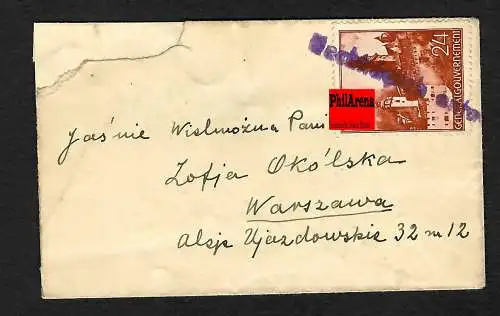 24
GENERALGOUVERNEMENT
PhilArena
Jaśnie Wielmożna Pani
Zofja Okólska
Warszawa
Aleje Ujazdowskie 32 m 12